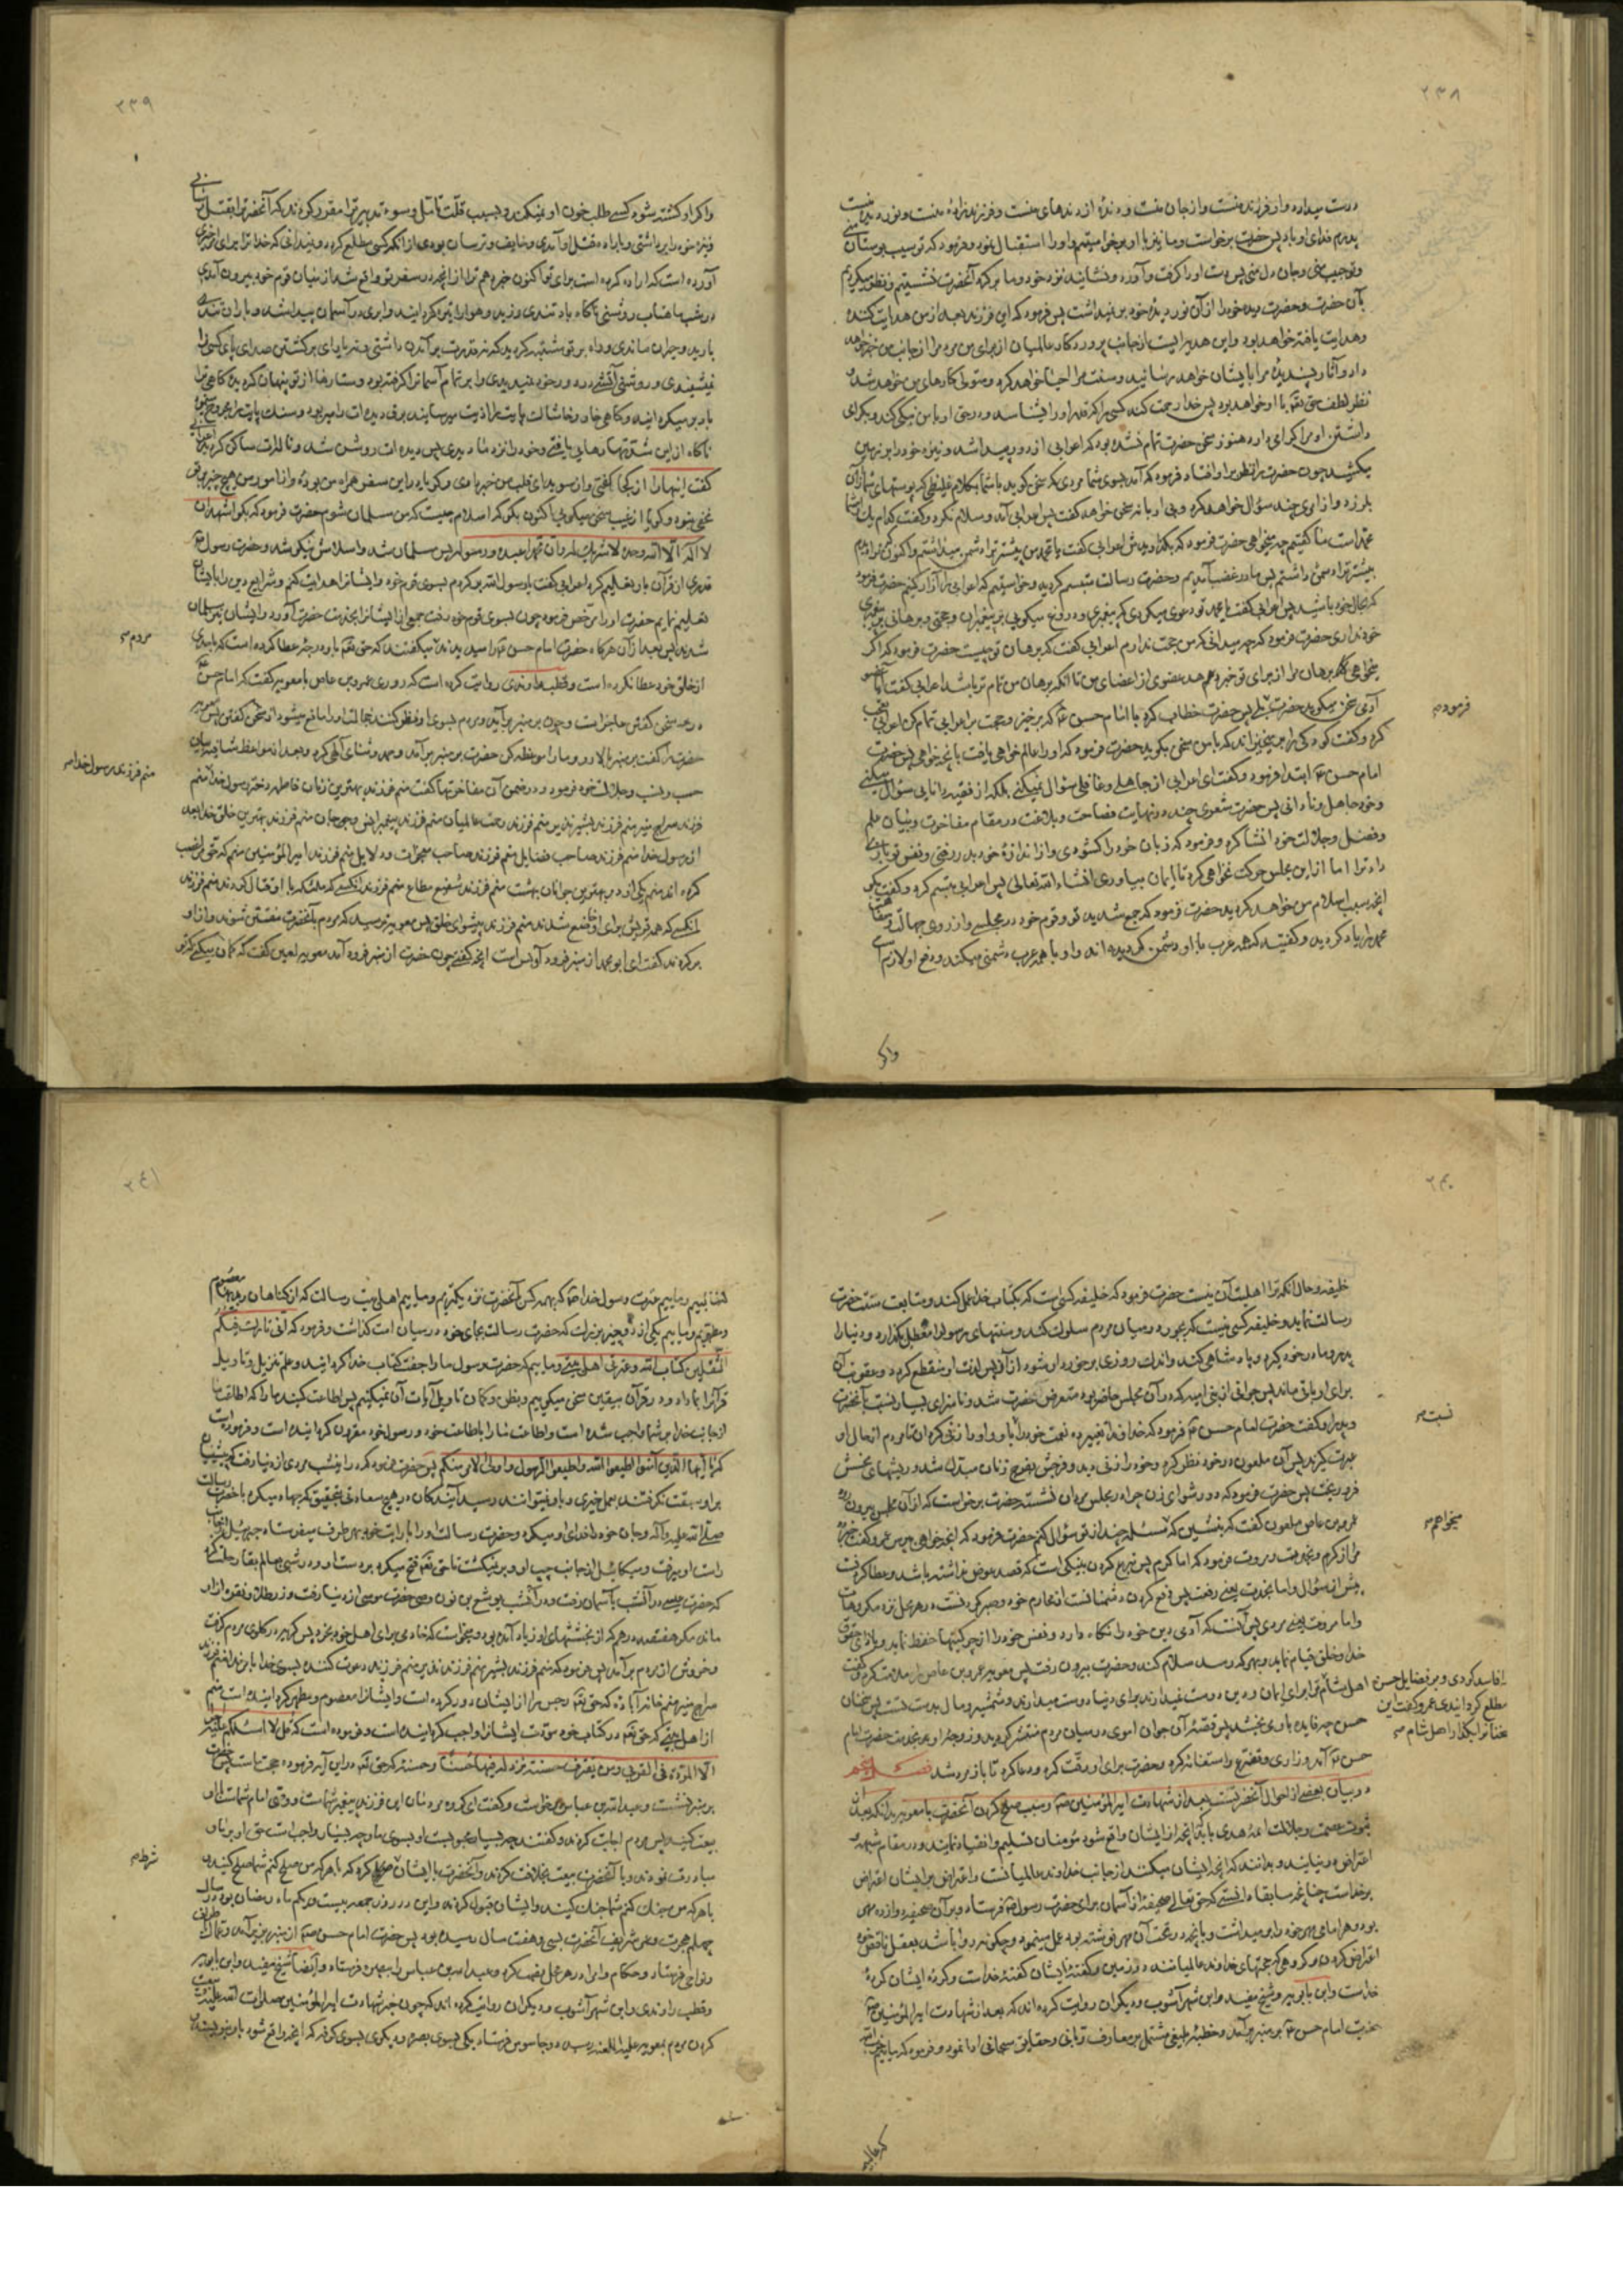 ۲۳۸
درست میدارد و او فرزند منست و از جان منست و دنده از دندهای منست و فرزندزاده منست و نور دیده منست
پدرم فدای او باد پس حضرت برخواست و ما نیز با او برخواستیم و او را استقبال نمود و فرمود که تو سیب بوستان منی
و تو حبیب منی و جان دل منی پس دست او را گرفت و آورد و نشانید نزد خود و ما بر گرد آنحضرت نشستیم و نظر میکردیم
بآن حضرت و حضرت دیده خود را از آن نور دیده خود بر نمیداشت پس فرمود که این فرزند بعد از من هدایت کننده
و هدایت یافته خواهد بود و این هدیه ایست از جانب پروردگار عالمیان از برای من مردم را از جانب من خبر خواهد
داد و آثار پسندیده مرا بایشان خواهد رسانید و سنت مرا احیا خواهد کرد و متولی کارهای من خواهد شد و
نظر لطف حق تعالی با او خواهد بود پس خدا رحمت کند کسی را که قدر او را بشناسد و در حق او با من نیکی کند و بگرامی
داشتن او مرا گرامی دارد هنوز سخن حضرت تمام نشده بود که اعرابی از دور پیدا شد و نیزه خود را بر زمین
میکشید چون حضرت را نظر بر او افتاد فرمود که آمد بسوی شما مردی که سخن گوید با شما بکلام غلیظی که پوستهای شما از آن
بلرزد و از امری چند سؤال خواهد کرد و بی ادبانه سخن خواهد گفت پس اعرابی آمد و سلام نکرد و گفت کدام یک از شما
محمد است ما گفتیم چه میخواهی حضرت فرمود که بگذاریدش اعرابی گفت یا محمد من پیشتر ترا دشمن میداشتم و اکنون که ترا دیدم
بیشتر ترا دشمن داشتم پس ما در غضب آمدیم و حضرت رسالت متبسم گردید و خواستیم که اعرابی را آزار کنیم حضرت فرمود
که بحال خود باشید پس اعرابی گفت یا محمد تو دعوی میکنی که پیغمبری و دروغ میگویی بر پیغمبران و حجتی و برهانی بر پیغمبری
خود نداری حضرت فرمود که چه میدانی که من حجت ندارم اعرابی گفت که برهان تو چیست حضرت فرمود که اگر
میخواهی که برهان مرا از برای تو خبر دهد عضوی از اعضای من تا آنکه برهان من تمام تر باشد اعرابی گفت آیا عضو
آدمی سخن میگوید حضرت بلی پس حضرت خطاب کرد با امام حسن ع که برخیز و حجت بر اعرابی تمام کن اعرابی تعجب
فرمود صح
کرد و گفت کودکی را بر میخیزاند که با من سخن بگوید حضرت فرمود که او را عالم خواهی یافت بآنچه خواهی پس حضرت
امام حسن ع ابتدا فرمود و گفت ای اعرابی از جاهلی و غافلی سؤال نمیکنی بلکه از فقیه و دانایی سؤال میکنی
و خود جاهل و نادانی پس حضرت شعری چند در نهایت فصاحت و بلاغت در مقام مفاخرت و بیان علم
و فضل و جلالت خود انشا کرد و فرمود که زبان خود را گشودی و از اندازه خود بدر رفتی و نفس تو بازی
داد ترا اما از این مجلس حرکت نخواهی کرد تا ایمان بیاوری انشاء الله تعالی پس اعرابی تبسم کرد و گفت بگو
آنچه سبب اسلام من خواهد گردید حضرت فرمود که جمع شدید تو و قوم خود در مجلسی و از روی جهالت و سفاهت
محمد را یاد کردید و گفتید که همه عرب با او دشمن گردیده اند و او با همه عرب دشمنی میکند و دفع او لازمست
واگر
۲۳۹
واگر او کشته شود کسی طلب خون او نمیکند و بسبب قلت تأمل و سوء تدبیر ترا مقرر کردند که آنحضرت را بقتل رسانی
و نیزه خود را برداشتی و باراده قتل او آمدی و خایف و ترسان بودی از آنکه کسی مطلع گردد و نمیدانی که خدا ترا برای امر خیری
آورده است که اراده کرده است برای تو اکنون خبر دهم ترا از آنچه در سفر تو واقع شد از میان قوم خود بیرون آمدی
در شب مهتاب روشنی ناگاه باد تندی وزید و هوا را تیره گردانید و ابری در آسمان پیدا شد و باران تندی
بارید و حیران ماندی و راه بر تو مشتبه گردید که نه قدرت بر آمدن داشتی و نه یارای برگشتن صدای پای کسی را
نمیشنیدی و روشنی آتشی در دور خود نمیدیدی و ابر تمام آسمان را گرفته بود و ستارها از تو پنهان گردید گاهی ترا
باد بر میگردانید و گاهی خار و خاشاک پایت را اذیت میرسانید برق دیده ات را میربود و سنگ پایت را مجروح میکرد
ناگاه از این شدتها رهایی یافتی و خود را نزد ما دیدی پس دیده ات روشن شد و ناله ات ساکن گردید اعرابی
گفت اینها را از کجا گفتی و از سویدای قلب من خبر دادی و گویا در این سفر همراه من بوده و از امور من هیچ چیز بر تو
مخفی نبود و گویا از غیب سخن میگویی اکنون بگو که اسلام چیست که من مسلمان شوم حضرت فرمود که بگو اشهد ان
لا اله الا الله وحده لا شریک له و ان محمدا عبده و رسوله پس مسلمان شد و اسلامش نیکو شد و حضرت رسول ص
قدری از قرآن باو تعلیم کرد اعرابی گفت یا رسول الله برگردم بسوی قوم خود و ایشانرا هدایت کنم و شرایع دین را بایشان
تعلیم نمایم حضرت او را مرخص فرمود چون بسوی قوم خود رفت جمعی از ایشانرا بخدمت حضرت آورد و ایشان نیز مسلمان
شدند پس بعد از آن هرگاه حضرت امام حسن ع را میدیدند میگفتند که حق تعالی باو درجه عطا کرده است که باحدی
مردم صح
از خلق خود عطا نکرده است و قطب راوندی روایت کرده است که روزی عمرو بن عاص با معویه گفت که امام حسن ع
در سخن گفتن عاجز است و چون بر منبر بر آید و مردم بسوی او نظر کنند خجالت او را مانع میشود از سخن گفتن پس معویه
حضرت را گفت بر منبر بالا رو و ما را موعظه کن حضرت بر منبر بر آمد و حمد و ثنای الهی کرد و بعد از مواعظ شافیه بیان
حسب و نسب و جلالت خود فرمود و در ضمن آن مفاخرتها گفت منم فرزند بهترین زنان فاطمه دختر رسول خدا منم
منم فرزند رسول خدا صح
فرزند سراج منیر منم فرزند بشیر نذیر منم فرزند رحمت عالمیان منم فرزند پیغمبر انس و جن منم فرزند بهترین خلق خدا بعد
از رسول خدا منم فرزند صاحب فضایل منم فرزند صاحب معجزات و دلایل منم فرزند امیر المؤمنین منم که حق مرا غصب
کرده اند منم یکی از دو بهترین جوانان بهشت منم فرزند شفیع مطاع منم فرزند آنکسی که ملئکه با او قتال کردند منم فرزند
آنکسی که همه قریش برای او خاضع شدند منم فرزند پیشوای خلق پس معویه ترسید که مردم بآنحضرت مفتتن شوند و از او
برگردند گفت ای ابو محمد از منبر فرود آ بس است آنچه گفتی چون حضرت از منبر فرود آمد معویه لعین گفت که گمان میکنی که تو
۲۴۰
خلیفه و حال آنکه ترا اهلیت آن نیست حضرت فرمود که خلیفه کسی است که بکتاب خدا عمل کند و متابعت سنت حضرت
رسالت نماید و خلیفه کسی نیست که بجور در میان مردم سلوک کند و سنتهای رسول را معطل بگذارد و دنیا را
پدر و مادر خود گیرد و پادشاهی کند و اندک روزی برخوردار شود از آن پس لذت او منقطع گردد و عقوبت آن
برای او باقی ماند پس جوانی از بنی امیه که در آن مجلس حاضر بود متعرض حضرت شد و ناسزای بسیار نسبت بآنحضرت
نسبت صح
و پدر او گفت حضرت امام حسن ع فرمود که خداوندا تغییر ده نعمت خود را باو و او را زنی گردان تا مردم از حال او
عبرت گیرند پس آن ملعون در خود نظر کرد و خود را زنی دید و فرجش بفرج زنان مبدل شد و ریشهای نحسش
فرو ریخت پس حضرت فرمود که دور شو ای زن چرا در مجلس مردان نشسته حضرت برخواست که از آن مجلس بیرون رود
عمرو بن عاص ملعون گفت که بنشین که مسئله چند از تو سؤال کنم حضرت فرمود که آنچه خواهی بپرس عمرو گفت خبر ده
میخواهم صح
مرا از کرم و نجدت و مروت فرمود که اما کرم پس تبرع کردن بنیکی است که قصد عوض نداشته باشد و عطا کردنست
پیش از سؤال و اما نجدت یعنی رفعت پس دفع کردن دشمنانست از محارم خود و صبر کردنست در هر محل نزد مکروهات
و اما مروت یعنی مردی پس آنست که آدمی دین خود را نگاه دارد و نفس خود را از چرکیها حفظ نماید و باداء حقوق
خدا و خلق قیام نماید و بهر که رسد سلام کند و حضرت بیرون رفت پس معویه عمرو بن عاص را ملامت کرد و گفت
اهل شام را فاسد کردی و بر فضایل حسن
مطلع گردانیدی عمرو گفت این
سخنان را بگذار اهل شام صح
اهل شام ترا برای ایمان و دین دوست نمیدارند برای دنیا دوست میدارند و شمشیر و مال بدست تست پس سخنان
حسن چه فایده باو می بخشد پس قصه آن جوان اموی در میان مردم منتشر گردید و زوجه او بخدمت حضرت امام
حسن ع آمد و زاری و تضرع و استغاثه کرد و حضرت برای او رقت کرد و دعا کرد تا باز مرد شد فصل پنجم
در بیان بعضی از احوال آنحضرتست بعد از شهادت امیرالمؤمنین ع و سبب صلح کردن آنحضرت با معویه بدانکه بعد از
ثبوت عصمت و جلالت ائمه هدی باید که آنچه از ایشان واقع شود مؤمنان تسلیم و انقیاد نمایند و در مقام شبهه و
اعتراض در نیایند و بدانند که آنچه ایشان میکنند از جانب خداوند عالمیانست و اعتراض بر ایشان اعتراض
بر خداست چنانچه سابقا دانستی که حق تعالی صحیفه از آسمان برای حضرت رسول ص فرستاد و بر آن صحیفه دوازده مهر
بود و هر امامی مهر خود را بر میداشت و بآنچه در تحت آن مهر نوشته بود عمل مینمود و چگونه روا باشد بعقل ناقص خود
اعتراض کردن بر گروهی که حجتهای خداوند عالمیانند در زمین و گفته ایشان گفته خداست و کرده ایشان کرده
خداست و ابن بابویه و شیخ مفید و ابن شهر آشوب و دیگران روایت کرده اند که بعد از شهادت امیر المؤمنین ع
حضرت امام حسن ع بر منبر بر آمد و خطبه بلیغی مشتمل بر معارف ربانی و حقایق سبحانی ادا نمود و فرمود که ماییم حزب الله
که غالبیم
۲۴۱
که غالبیم و ماییم عترت رسول خدا ص که بهمه کس بآنحضرت نزدیکتریم و ماییم اهل بیت رسالت که از گناهان و بدیها معصوم
و مطهریم و ماییم یکی از دو چیز بزرگ که حضرت رسالت بجای خود در میان امت گذاشت و فرمود که انی تارک فیکم
الثقلین کتاب الله و عترتی اهل بیتی و ماییم که حضرت رسول ما را جفت کتاب خدا گردانید و علم تنزیل و تأویل
قرآن را بما داد و در قرآن بیقین سخن میگوییم و بظن و گمان تأویل آیات آن نمیکنیم پس اطاعت کنید ما را که اطاعت ما
از جانب خدا بر شما واجب شده است و اطاعت ما را باطاعت خود و رسول خود مقرون گردانیده است و فرموده است
که یا ایها الذین آمنوا اطیعوا الله و اطیعوا الرسول و اولی الامر منکم پس حضرت فرمود که در این شب مردی از دنیا رفت که پیشینیان
بر او سبقت نگرفتند بعمل خیری و باو نمیتوانند رسید آیندگان در هیچ سعادتی بتحقیق که جهاد میکرد با حضرت رسالت
صلی الله علیه و آله و جان خود را فدای او میکرد و حضرت رسالت او را با رایت خود بهر طرف میفرستاد جبرئیل از جانب
راست او میرفت و میکائیل از جانب چپ او و بر نمیگشت تا حق تعالی فتح میکرد بر دست او و در شبی بعالم بقا رحلت کرد
که حضرت عیسی در آن شب بآسمان رفت و در آن شب یوشع بن نون وصی حضرت موسی از دنیا رفت و از طلا و نقره از او
نماند مگر هفتصد درهم که از بخششهای او زیاد آمده بود و میخواست که خادمی برای اهل خود بخرد پس گریه در گلوی مردم گرفت
و خروش از مردم بر آمد پس فرمود که منم فرزند بشیر منم فرزند نذیر منم فرزند دعوت کننده بسوی خدا باذن خدا منم فرزند
سراج منیر منم از خانه آباده که حق تعالی رجس را از ایشان دور کرده است و ایشانرا معصوم و مطهر گردانیده است منم
از اهل بیتی که حق تعالی در کتاب خود مودت ایشانرا واجب گردانیده است و فرموده است که قل لا اسئلکم علیه اجرا
الا المودة فی القربی و من یقترف حسنة نزد له فیها حسنا و حسنه که حق تعالی در این آیه فرموده محبت ماست پس حضرت
بر منبر نشست و عبد الله بن عباس برخواست و گفت ای گروه مردمان این فرزند پیغمبر شماست و وصی امام شماست با او
بیعت کنید پس مردم اجابت کردند و گفتند چه بسیار محبوبست او بسوی ما و چه بسیار واجب است حق او بر ما و
مبادرت نمودند و با آنحضرت بیعت بخلافت کردند و آنحضرت با ایشان شرط کرد که با هر که من صلح کنم شما صلح کنید و
شرط صح
با هر که من جنگ کنم شما جنگ کنید و ایشان قبول کردند و این در روز جمعه بیست و یکم ماه رمضان بود در سال
چهلم هجرت و عمر شریف آنحضرت بسی و هفت سال رسیده بود پس حضرت امام حسن ع از منبر بزیر آمد و عمال باطراف
و نواحی فرستاد و حکام و امرا در هر محل نصب کرد و عبد الله بن عباس را ببصره فرستاد و ایضا شیخ مفید و ابن بابویه
و قطب راوندی و ابن شهر آشوب و دیگران روایت کرده اند که چون خبر شهادت امیر المؤمنین صلوات الله علیه و بیعت
کردن مردم بمعویه علیه اللعنه رسید دو جاسوس فرستاد یکی بسوی بصره و دیگری بسوی کوفه که آنچه واقع شود باو بنویسند